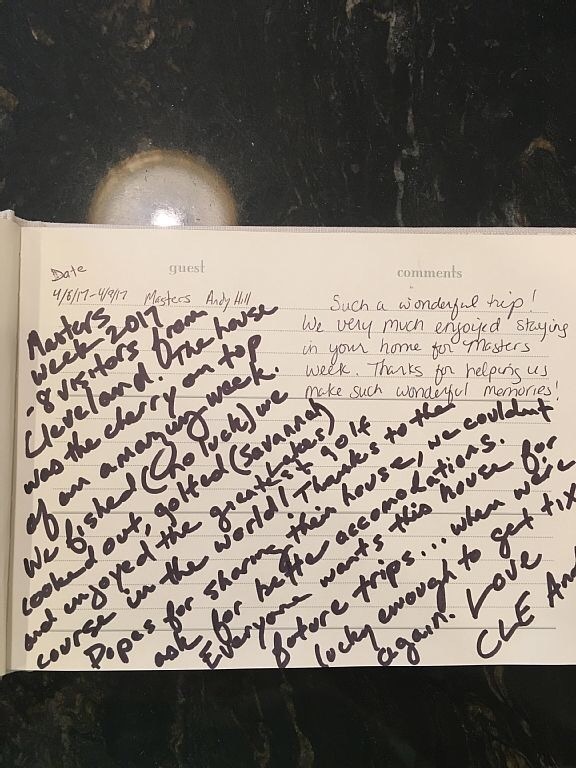 Date guest comments
4/6/17-4/9/17 Masters Andy Hill
Such a wonderful trip!
We very much enjoyed staying
in your home for Masters
week. Thanks for helping us
make such wonderful memories!
Masters
week 2017
-8 visitors from
Cleveland. The house
was the cherry on top
of an amazing week.
We fished (no luck) we
cooked out, golfed (Savannah
Lakes)
and enjoyed the greatest golf
course in the world! Thanks to the
Popes for sharing their house, we couldnt
ask for better accomodations.
Everyone wants this house for
future trips... when we're
lucky enough to get tix
again. Love
CLE And